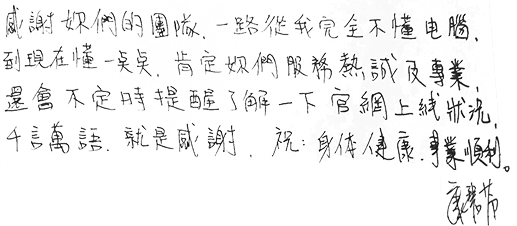 感謝妳們的團隊，一路從我完全不懂电腦，
到現在懂一点点，肯定妳們服務熱誠及專業，
還會不定時提醒了解一下官網上线狀況，
千言萬語，就是感謝，祝：身体健康，事業順利。